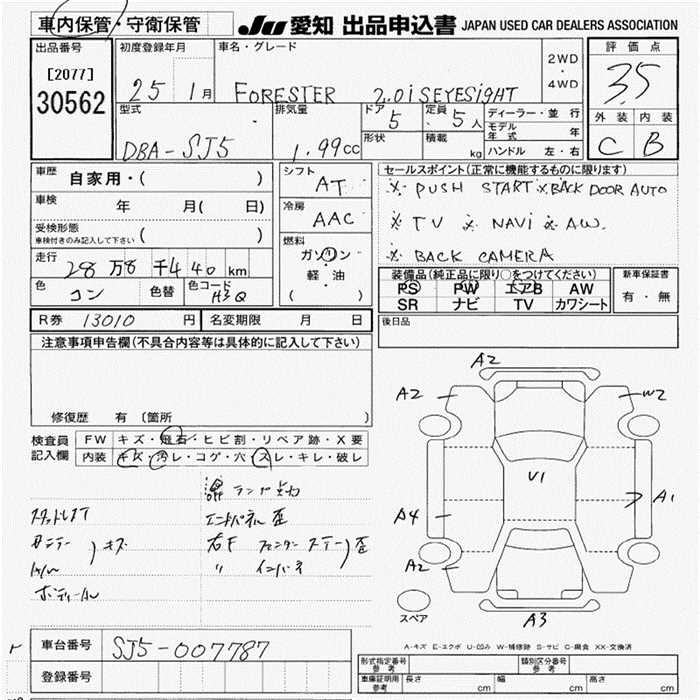 車内保管・守衛保管 JU 愛知 出品申込書 JAPAN USED CAR DEALERS ASSOCIATION
出品番号 初度登録年月 車名・グレード 2WD・4WD 評価点
[2077] 30562 25 1月 FORESTER 2.0i S EYESIGHT 3.5
型式 排気量 ドア 5 定員 5人 ディーラー・並行 外装 内装
モデル年式 年
DBA-SJ5 1.99cc 形状 積載 kg ハンドル 左・右 C B
車歴 自家用・( ) シフト AT セールスポイント(正常に機能するものに限ります)
※ PUSH START ※ BACK DOOR AUTO
車検 年 月( 日) 冷房 AAC
※ TV ※ NAVi ※ AW.
受検形態 車検付きのみ記入して下さい ( )
燃料 ガソリン 軽・油 ( )
※ BACK CAMERA
走行 28万8千440km
装備品(純正品に限り○をつけてください) 新車保証書
PS PW エアB AW 有・無
SR ナビ TV カワシート
色 コン 色替 色コード H3Q
R券 13010円 名変期限 月 日 後日品
注意事項申告欄(不具合内容等は具体的に記入して下さい)
修復歴 有 〔箇所 〕
検査員記入欄 FW キズ・飛石・ヒビ割・リペア跡・X要
内装 キズ・汚レ・コゲ・穴・スレ・キレ・破レ
ランプ点灯
エンドパネル歪
キズ 右F フェンダーステー 歪
〃 インパネ
A2
A2 W2
V1
A1
A4
A2
A3
スペア
A-キズ E-エクボ U-凹み W-補修跡 S-サビ C-腐食 XX-交換済
車台番号 SJ5-007787
登録番号
型式指定番号 参考 類別区分番号 参考
車庫証明用 参考 長さ cm 幅 cm 高さ cm